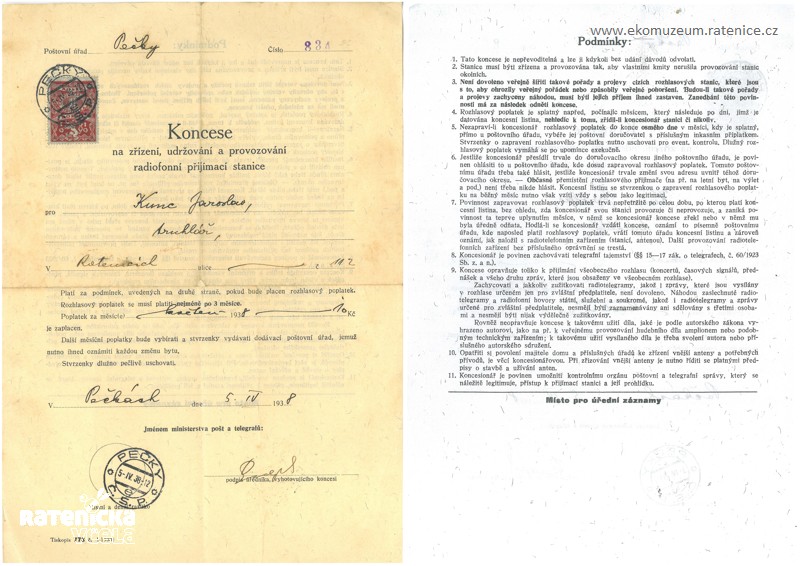 Poštovní úřad Pečky Číslo 834
PEČKY
Koncese
na zřízení, udržování a provozování
radiofonní přijímací stanice
pro Kunc Jaroslav,
truhlář,
v Ratenicích ulice č. 112
Platí za podmínek, uvedených na druhé straně, pokud bude placen rozhlasový poplatek.
Rozhlasový poplatek se musí platiti nejméně po 3 měsíce.
Poplatek za měsíc(e) květen 1938 10 Kč
je zaplacen.
Další měsíční poplatky bude vybírati a stvrzenky vydávati dodávací poštovní úřad, jemuž
nutno ihned oznámiti každou změnu bytu.
Stvrzenky dlužno pečlivě uschovati.
V Pečkách dne 5. IV 1938
Jménem ministerstva pošt a telegrafů:
PEČKY
5.IV.38-12
Č.S.P.
podpis úředníka, vyhotovujícího koncesi
RATENICKÁ
Tiskopis
www.ekomuzeum.ratenice.cz
Podmínky:
1. Tato koncese je nepřevoditelná a lze ji kdykoli bez udání důvodů odvolati.
2. Stanice musí býti zřízena a provozována tak, aby vlastními kmity nerušila provozování stanic
okolních.
3. Není dovoleno veřejně šířiti takové pořady a projevy cizích rozhlasových stanic, které jsou
s to, aby ohrozily veřejný pořádek nebo způsobily veřejné pohoršení. Budou-li takové pořady
a projevy zachyceny náhodou, musí býti jejich příjem ihned zastaven. Zanedbání této povin-
nosti má za následek odnětí koncese.
4. Rozhlasový poplatek je splatný napřed, počínajíc měsícem, který následuje po dni, jímž je
datována koncesní listina, nehledíc k tomu, zřídil-li koncesionář stanici či nikoliv.
5. Nezapraví-li koncesionář rozhlasový poplatek do konce osmého dne v měsíci, kdy je splatný,
přímo u poštovního úřadu, vybéře jej poštovní doručovatel s příslušným inkasním příplatkem.
Stvrzenky o zapravení rozhlasového poplatku nutno uschovati pro event. kontrolu. Dlužný roz-
hlasový poplatek vymáhá se po upomínce exekučně.
6. Jestliže koncesionář přesídlí trvale do doručovacího okresu jiného poštovního úřadu, je povi-
nen ohlásiti to u poštovního úřadu, kde dosud zapravoval rozhlasový poplatek. Tomuto poštov-
nímu úřadu třeba také hlásit, jestliže koncesionář trvale změní svou adresu uvnitř téhož doru-
čovacího okresu. — Občasné přemístění rozhlasového přijímače (na př. na letní byt, na výlet
a pod.) není třeba nikde hlásit. Koncesní listinu se stvrzenkou o zapravení rozhlasového poplat-
ku na běžný měsíc nutno však vzíti vždy s sebou jako legitimaci.
7. Povinnost zapravovat rozhlasový poplatek trvá nepřetržitě po celou dobu, po kterou platí kon-
cesní listina, bez ohledu, zda koncesionář svou stanici provozuje či neprovozuje, a zaniká po-
vinnost ta teprve uplynutím měsíce, v němž se koncesionář koncese zřekl nebo v němž mu
byla úředně odňata. Hodlá-li se koncesionář vzdáti koncese, oznámí to písemně poštovnímu
úřadu, kde naposled platil rozhlasový poplatek, vrátí tomuto úřadu koncesní listinu a zároveň
oznámí, jak naložil s radiotelefonním zařízením (stanicí, antenou). Další provozování radiotele-
fonních zařízení bez příslušného oprávnění se trestá.
8. Koncesionář je povinen zachovávati telegrafní tajemství (§§ 15—17 zák. o telegrafech, č. 60/1923
Sb. z. a n.).
9. Koncese opravňuje toliko k přijímání všeobecného rozhlasu (koncertů, časových signálů, před-
nášek a všeho druhu zpráv, které jsou obsaženy ve všeobecném rozhlase).
Zachycovati a jakkoliv zužitkovati radiotelegramy, jakož i zprávy, které jsou vysílány
v rozhlase určeném jen pro zvláštní předplatitele, není dovoleno. Náhodou zaslechnuté radio-
telegramy a radiofonní hovory státní, služební a soukromé, jakož i radiotelegramy a zprávy
určené jen pro zvláštní předplatitele, nesmějí býti zaznamenávány ani sdělovány s třetími osoba-
mi a nesmějí býti nijak výdělečně zužitkovány.
Rovněž neopravňuje koncese k takovému užití díla, jaké je podle autorského zákona vy-
hrazeno autorovi, jako na př. k veřejnému provozování hudebního díla ampliónem nebo podob-
ným technickým zařízením; k takovému užití vysílaného díla je třeba svolení autora nebo pří-
slušného autorského sdružení.
10. Opatřiti si povolení majitele domu a příslušných úřadů ke zřízení vnější anteny a potřebných
přívodů, je věcí koncesionářovou. Při zřizování vnější anteny je nutno říditi se platnými před-
pisy o stavbě a užívání anten.
11. Koncesionář je povinen umožniti kontrolnímu orgánu poštovní a telegrafní správy, který se
náležitě legitimuje, přístup k přijímací stanici a její prohlídku.
Místo pro úřední záznamy